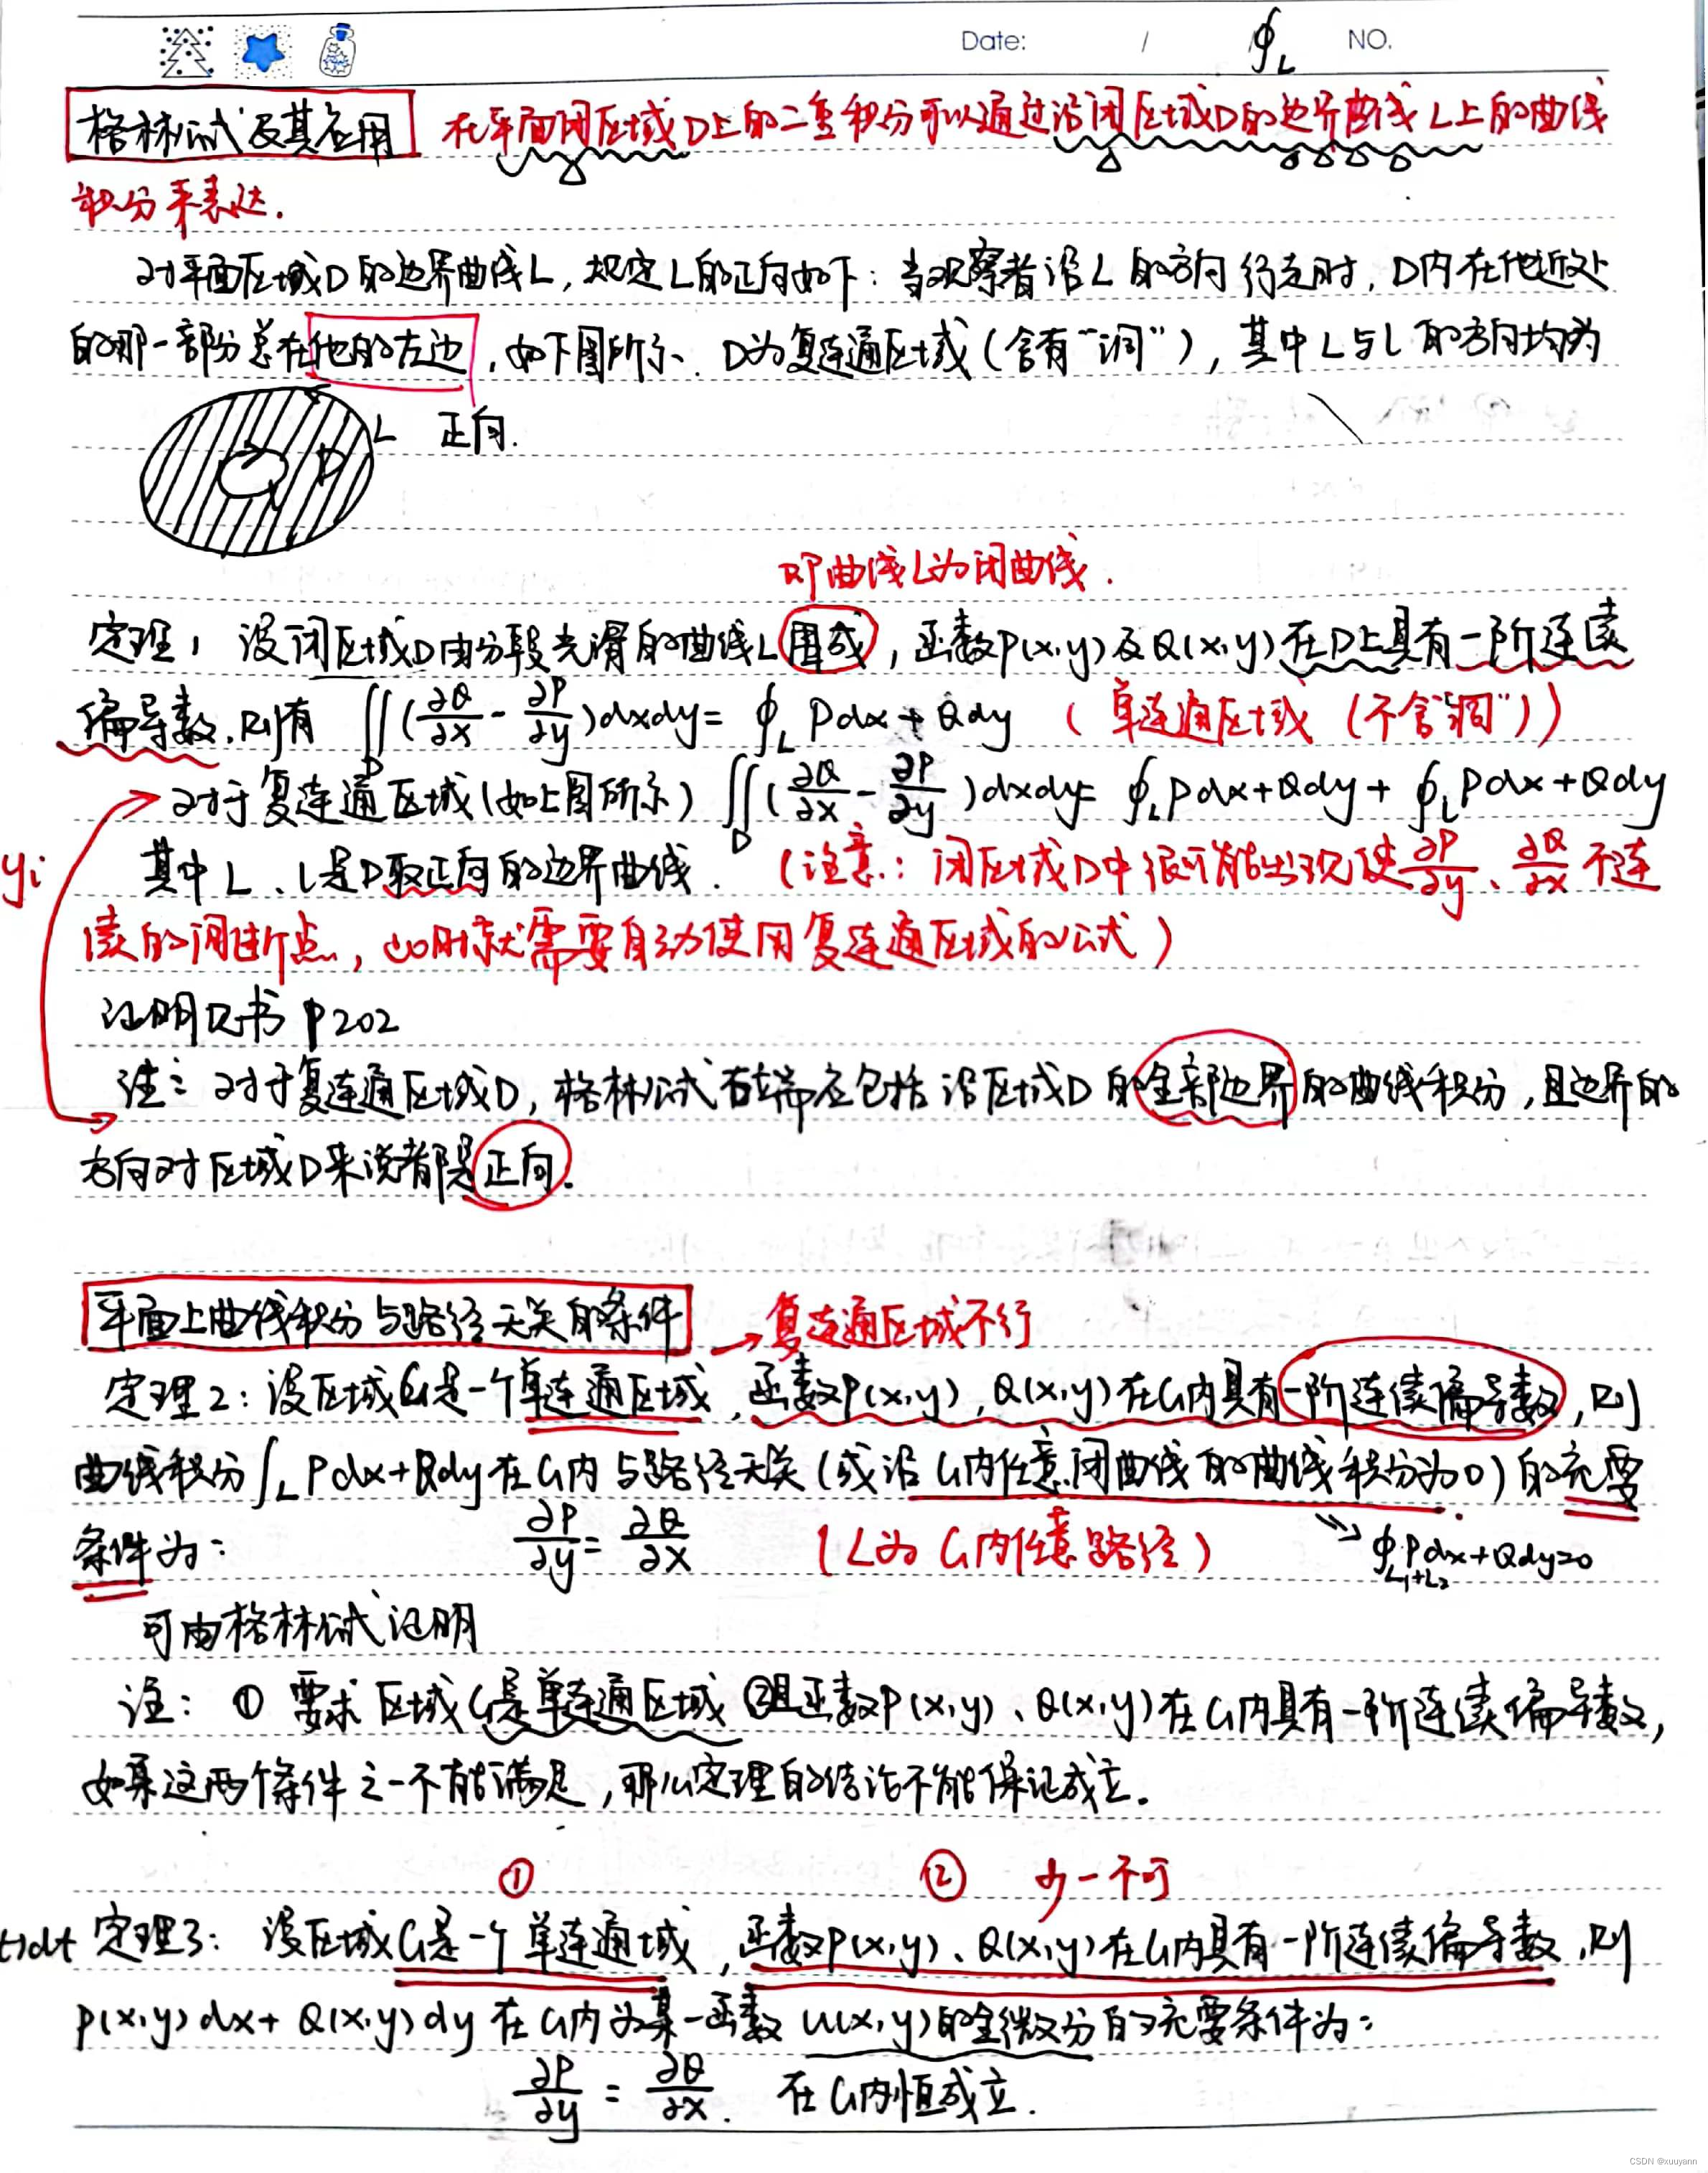 Date: / ∮_L NO.
格林公式及其应用 在平面闭区域D上的二重积分可以通过沿闭区域D的边界曲线L上的曲线
积分来表达.
对平面区域D的边界曲线L,规定L的正向如下:当观察者沿L的方向行走时,D内在他近处
的那一部分总在他的左边,如下图所示、D为复连通区域(含有“洞”),其中L与l的方向均为
L 正向.
D
即曲线L为闭曲线.
定理1 设闭区域D由分段光滑的曲线L围成,函数P(x,y)及Q(x,y)在D上具有一阶连续
偏导数,则有 ∬_D(∂Q/∂x - ∂P/∂y)dxdy = ∮_L Pdx+Qdy (单连通区域(不含“洞”))
对于复连通区域(如上图所示) ∬_D(∂Q/∂x - ∂P/∂y)dxdy = ∮_L Pdx+Qdy + ∮_l Pdx+Qdy
其中L、l是D取正向的边界曲线. (注意:闭区域D中很可能出现使∂P/∂y、∂Q/∂x不连
yi
续的间断点,此时就需要自动使用复连通区域的公式)
证明见书P202
注:对于复连通区域D,格林公式右端应包括沿区域D的全部边界的曲线积分,且边界的
方向对区域D来说都是正向.
平面上曲线积分与路径无关的条件 →复连通区域不行
定理2:设区域G是一个单连通区域,函数P(x,y),Q(x,y)在G内具有一阶连续偏导数,则
曲线积分∫_L Pdx+Qdy在G内与路径无关(或沿G内任意闭曲线的曲线积分为0)的充要
条件为: ∂P/∂y = ∂Q/∂x (L为G内任意路径) ⇒ ∮_{L₁+L₂} Pdx+Qdy=0
可由格林公式证明
注: ① 要求区域G是单连通区域 ②且函数P(x,y)、Q(x,y)在G内具有一阶连续偏导数,
如果这两个条件之一不能满足,那么定理的结论不能保证成立.
① ② 少一不可
t)dt 定理3: 设区域G是一个单连通域,函数P(x,y)、Q(x,y)在G内具有一阶连续偏导数,则
P(x,y)dx+Q(x,y)dy在G内为某一函数u(x,y)的全微分的充要条件为:
∂P/∂y = ∂Q/∂x. 在G内恒成立.
CSDN @xuuyann